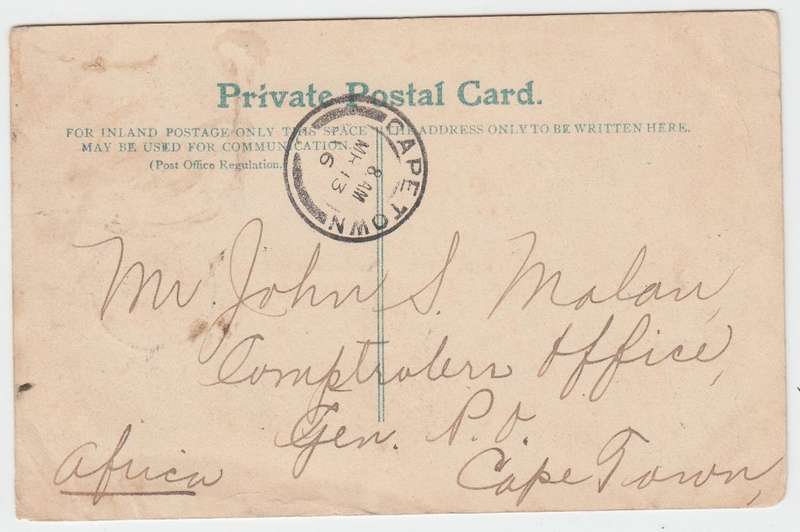 Private Postal Card.
FOR INLAND POSTAGE ONLY THIS SPACE
MAY BE USED FOR COMMUNICATION.
(Post Office Regulation.)
THE ADDRESS ONLY TO BE WRITTEN HERE.
CAPE TOWN
8 AM
MR 13
6
Mr. John S. Malan,
Comptrolers Office,
Gen. P.O.
Cape Town,
Africa